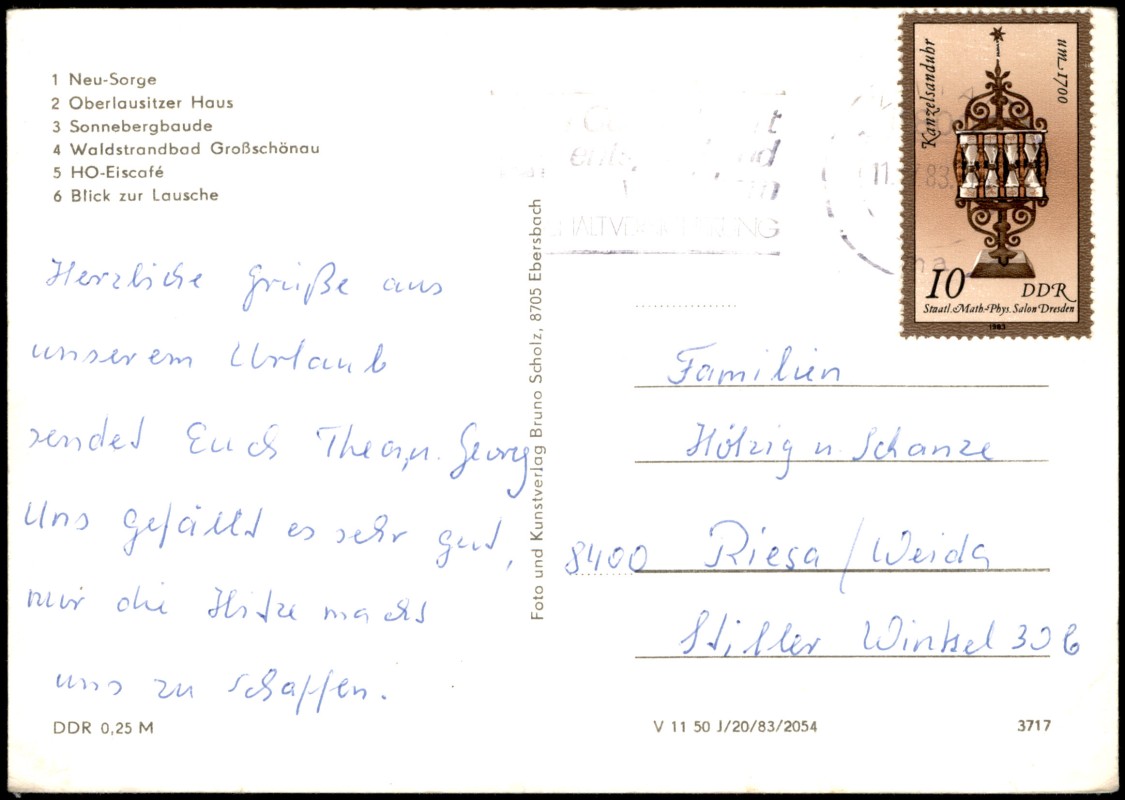 1 Neu-Sorge
2 Oberlausitzer Haus
3 Sonnebergbaude
4 Waldstrandbad Großschönau
5 HO-Eiscafé
6 Blick zur Lausche
Herzliche Grüße aus
unserem Urlaub
sendet Euch Thea u. Georg
Uns gefällt es sehr gut,
nur die Hitze macht
uns zu schaffen.
DDR 0,25 M
Foto und Kunstverlag Bruno Scholz, 8705 Ebersbach
11. 83.
Kanzelsanduhr
um 1700
10 DDR
Staatl. Math.-Phys. Salon Dresden
1983
Familien
Hölzig u. Schanze
8400 Riesa/Weida
Stiller Winkel 30b
V 11 50 J/20/83/2054
3717